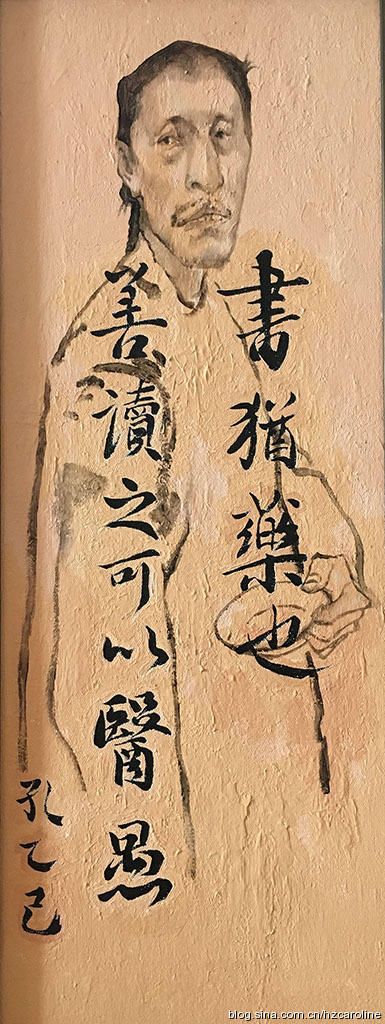 書猶藥也
善讀之可以醫愚
孔乙己
blog.sina.com.cn/hzcaroline